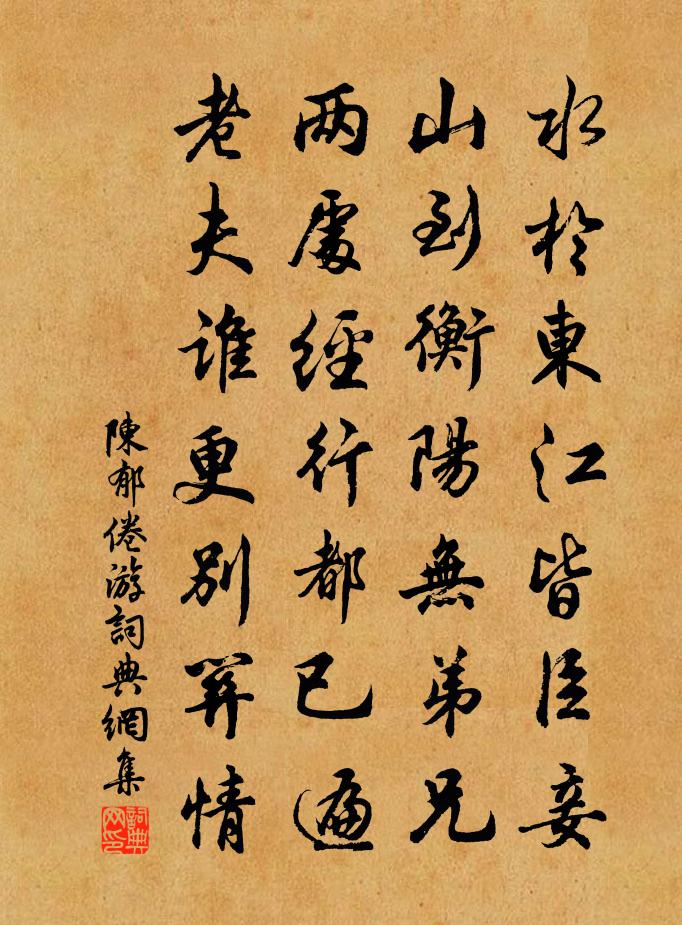 水於東江皆臣妾
山到衡陽無弟兄
两處經行都已遍
老夫誰更別關情
陳郁倦游詞典網集
詞典网印